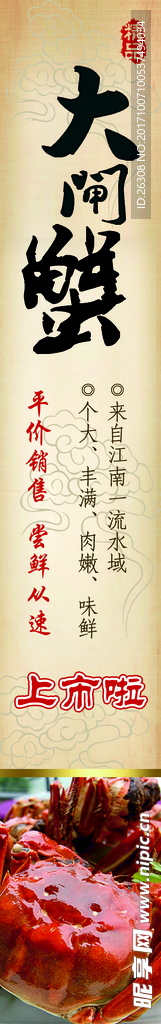 精品
大闸蟹
◎来自江南一流水域
◎个大、丰满、肉嫩、味鲜
平价销售 尝鲜从速
上市啦
ID:26308 NO:20171007100537494034
昵享网 www.nipic.cn